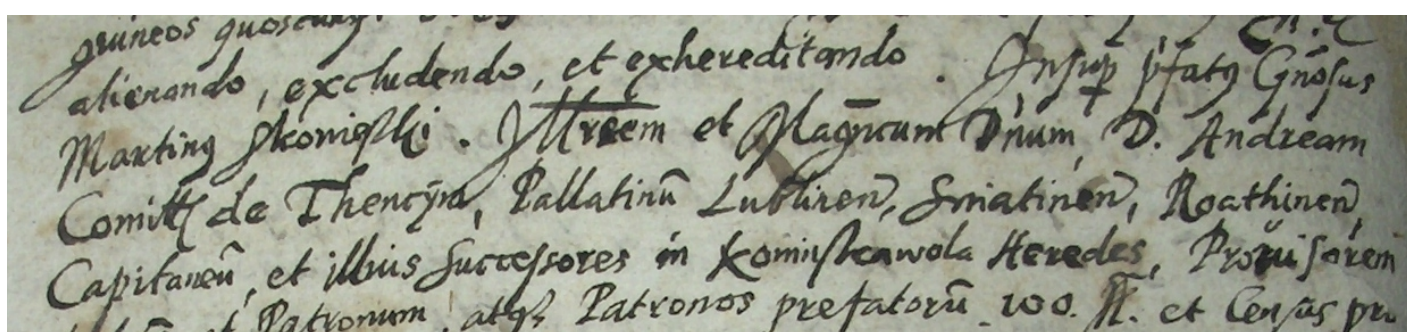 quoscunq
alienando, excludendo, et exhereditando. Insup pfatq Gnosus
Martinq Skoniesski. Illrem et Magncum Dnum, D. Andream
Comitē de Thenczyn, Pallatinū Lublinen, Sniatinen, Roathinen,
Capitaneū, et illius Successores in Koninskawola Heredes, Prouisorem
et Patronum, atq Patronos prefatorū 100. fl. et Census pro